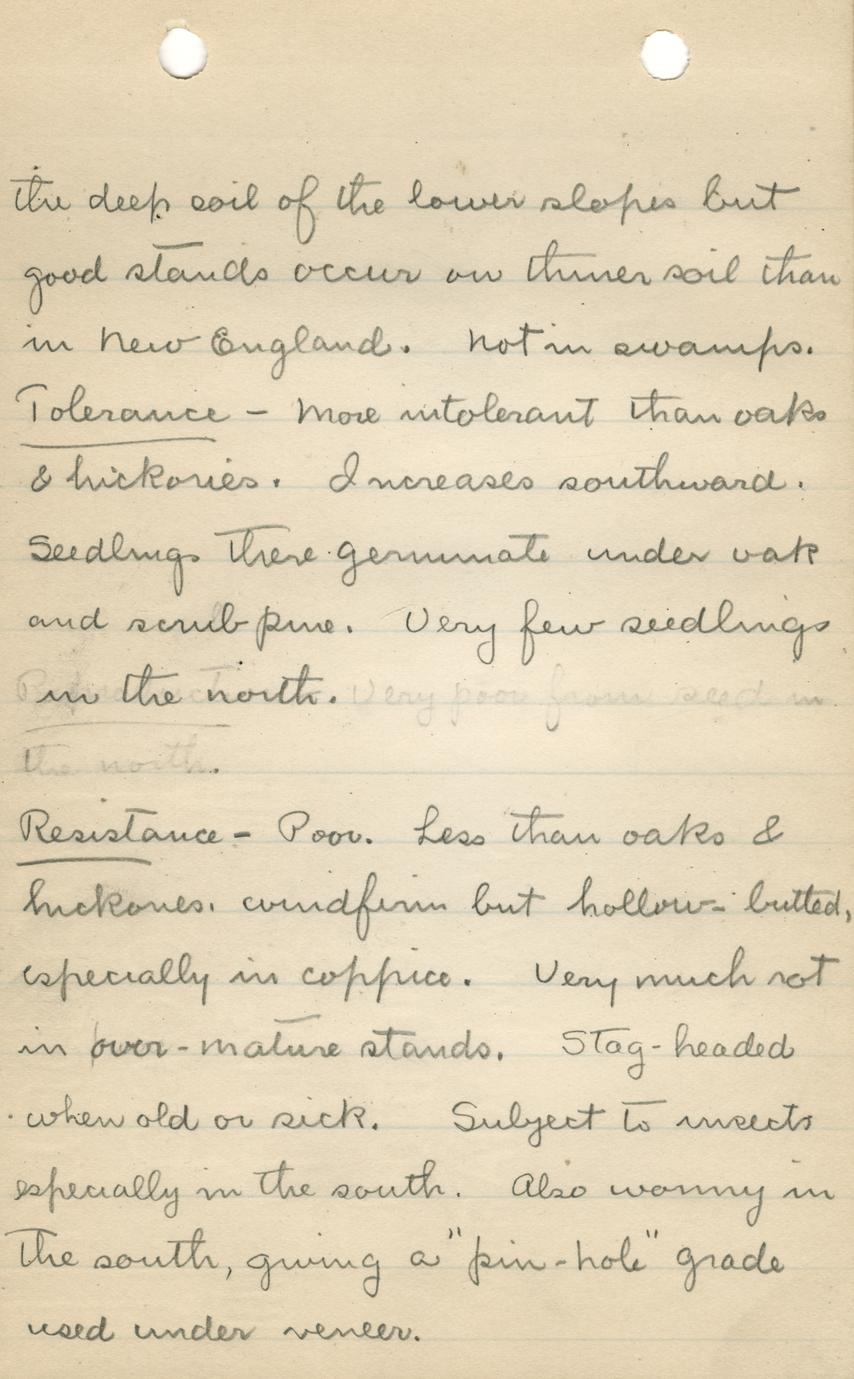 the deep soil of the lower slopes but
good stands occur on thinner soil than
in New England. Not in swamps.
Tolerance – More intolerant than oaks
& hickories. Increases southward.
Seedlings there germinate under oak
and scrub pine. Very few seedlings
in the north. Very poor from seed in
the north.
Resistance – Poor. Less than oaks &
hickories. Windfirm but hollow-butted,
especially in coppice. Very much rot
in over-mature stands. Stag-headed
when old or sick. Subject to insects
especially in the south. Also wormy in
the south, giving a "pin-hole" grade
used under veneer.